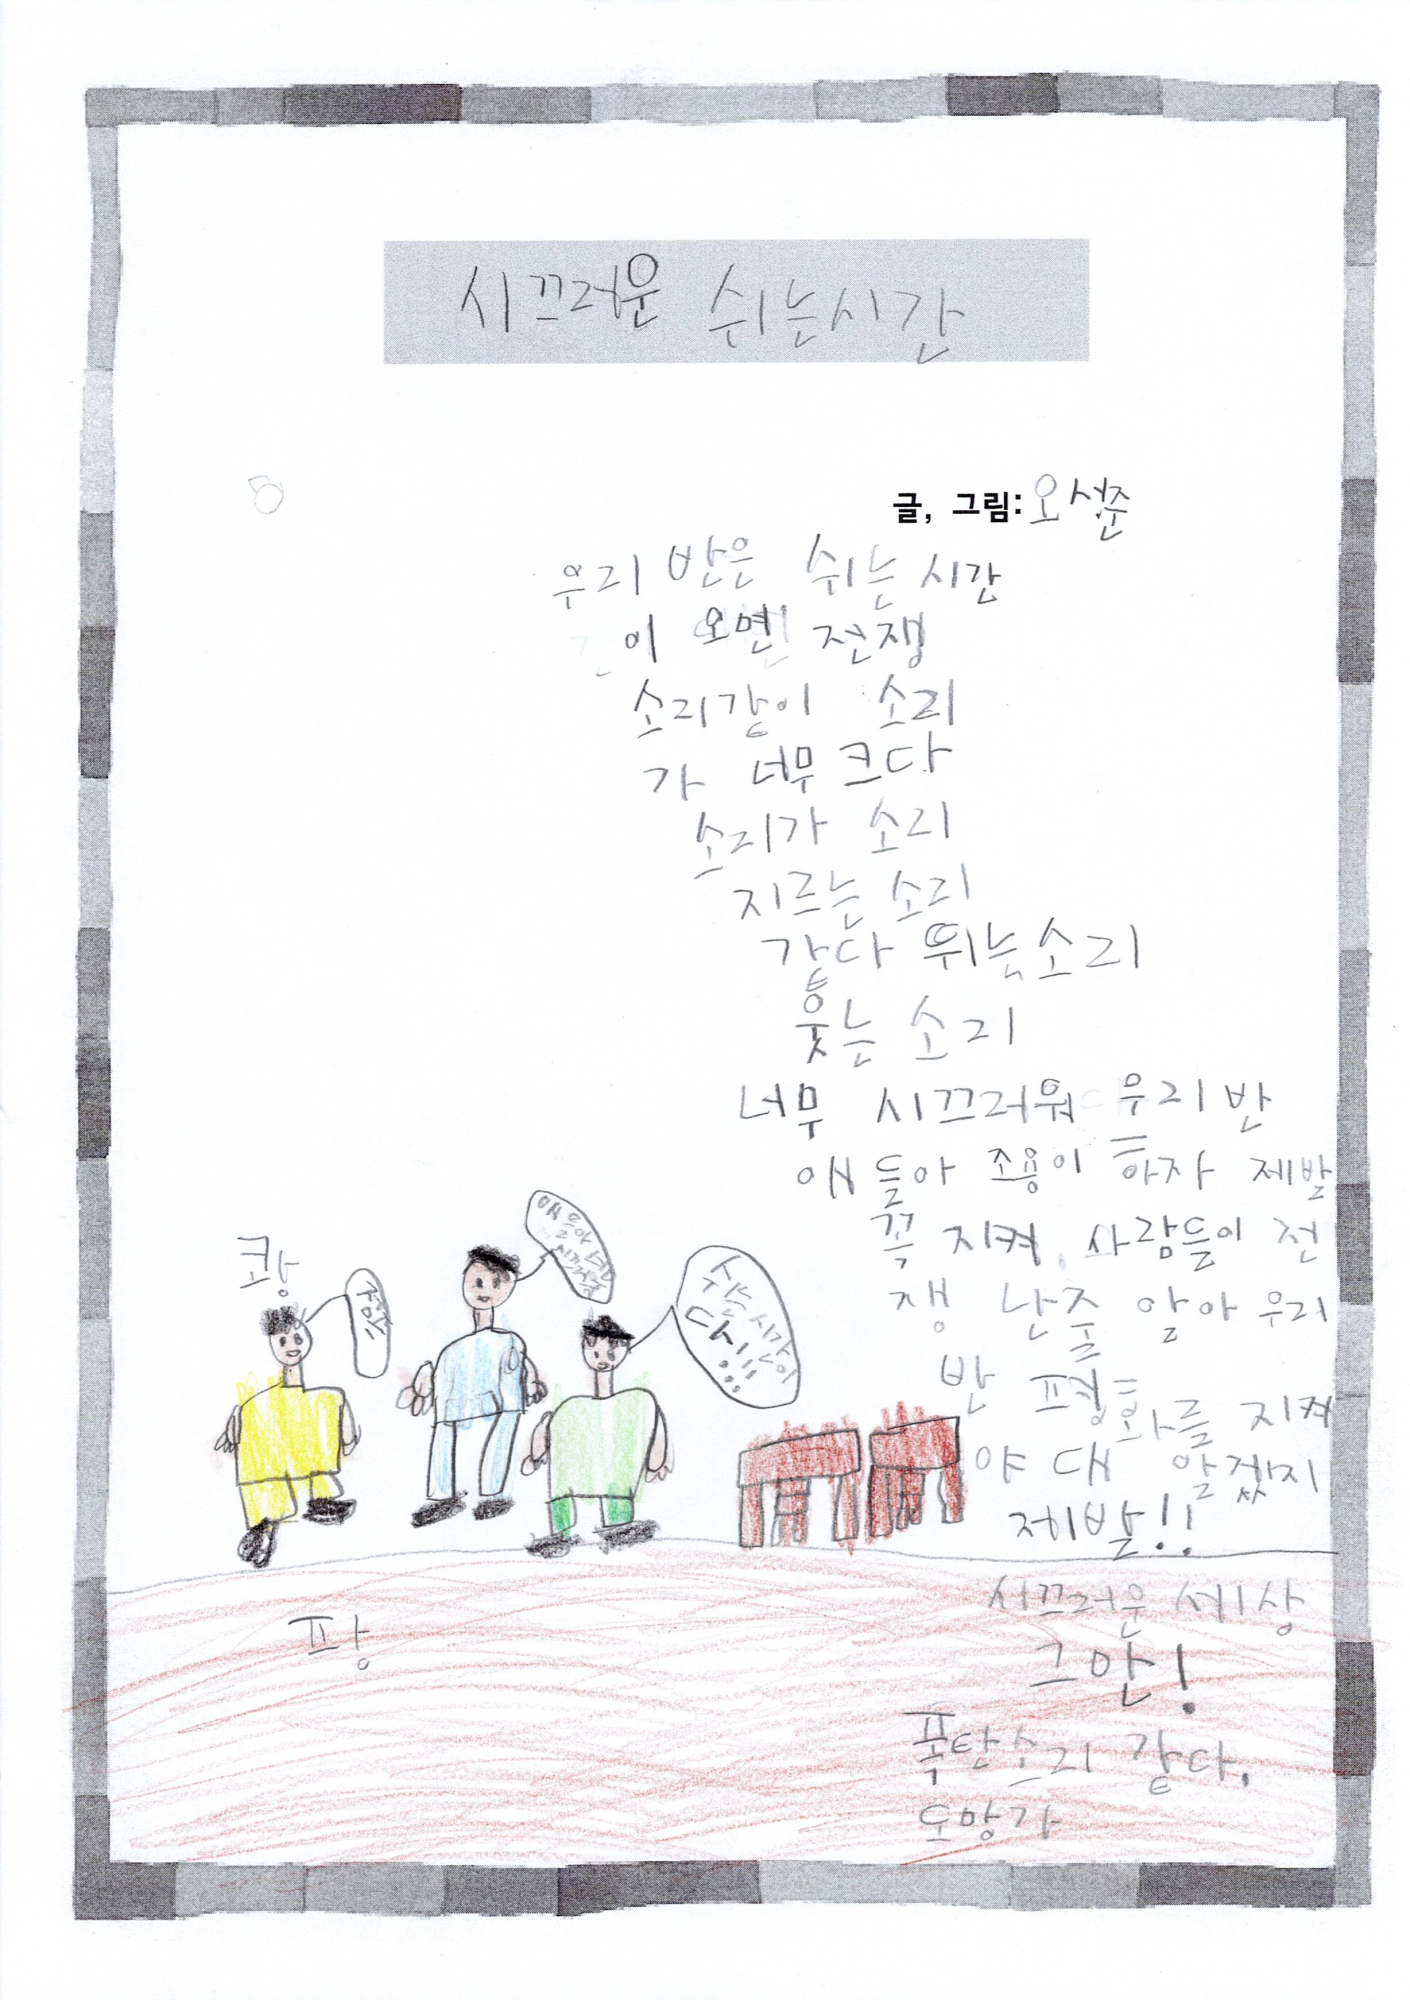 시끄러운 쉬는시간
글, 그림: 오성준
우리 반은 쉬는 시간
이 오면 전쟁
소리같이 소리
가 너무 크다
소리가 소리
지르는 소리
같다 뛰는소리
웃는 소리
너무 시끄러워 우리 반
애들아 조용이 하자 제발
꼭 지켜 사람들이 전
쟁 난줄 알아 우리
반 평화를 지켜
야 대 알겠지
제발!!
시끄러운 세상
그만!
폭탄소리 같다.
도망가
쾅
애들아
시끄러운
쉬는 시간이
다!!!
팡